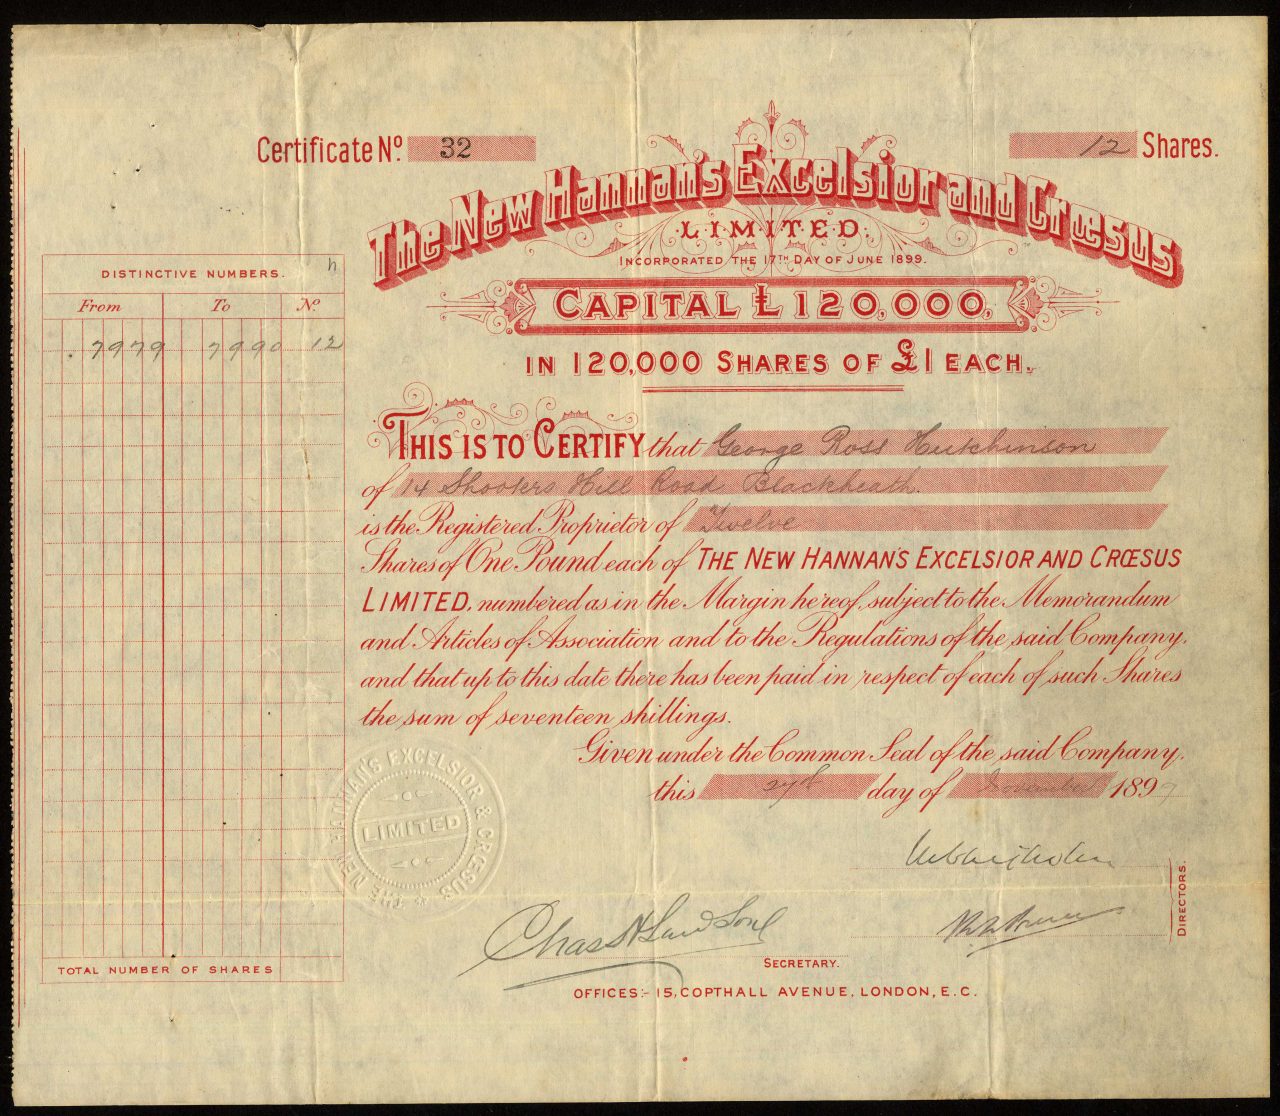 Certificate No. 32
12 Shares.
The New Hannan's Excelsior and Crœsus
LIMITED.
INCORPORATED THE 17TH DAY OF JUNE 1899.
CAPITAL £120,000,
IN 120,000 SHARES OF £1 EACH.
DISTINCTIVE NUMBERS.
From To No.
7979 7990 12
TOTAL NUMBER OF SHARES
THIS IS TO CERTIFY that George Ross Hutchinson
of 14 Shooters Hill Road Blackheath.
is the Registered Proprietor of Twelve
Shares of One Pound each of THE NEW HANNAN'S EXCELSIOR AND CRŒSUS
LIMITED, numbered as in the Margin hereof, subject to the Memorandum
and Articles of Association and to the Regulations of the said Company,
and that up to this date there has been paid in respect of each of such Shares
the sum of seventeen shillings.
Given under the Common Seal of the said Company,
this day of November 189
THE NEW HANNAN'S EXCELSIOR & CRŒSUS
LIMITED
DIRECTORS.
SECRETARY.
OFFICES:- 15, COPTHALL AVENUE, LONDON, E.C.